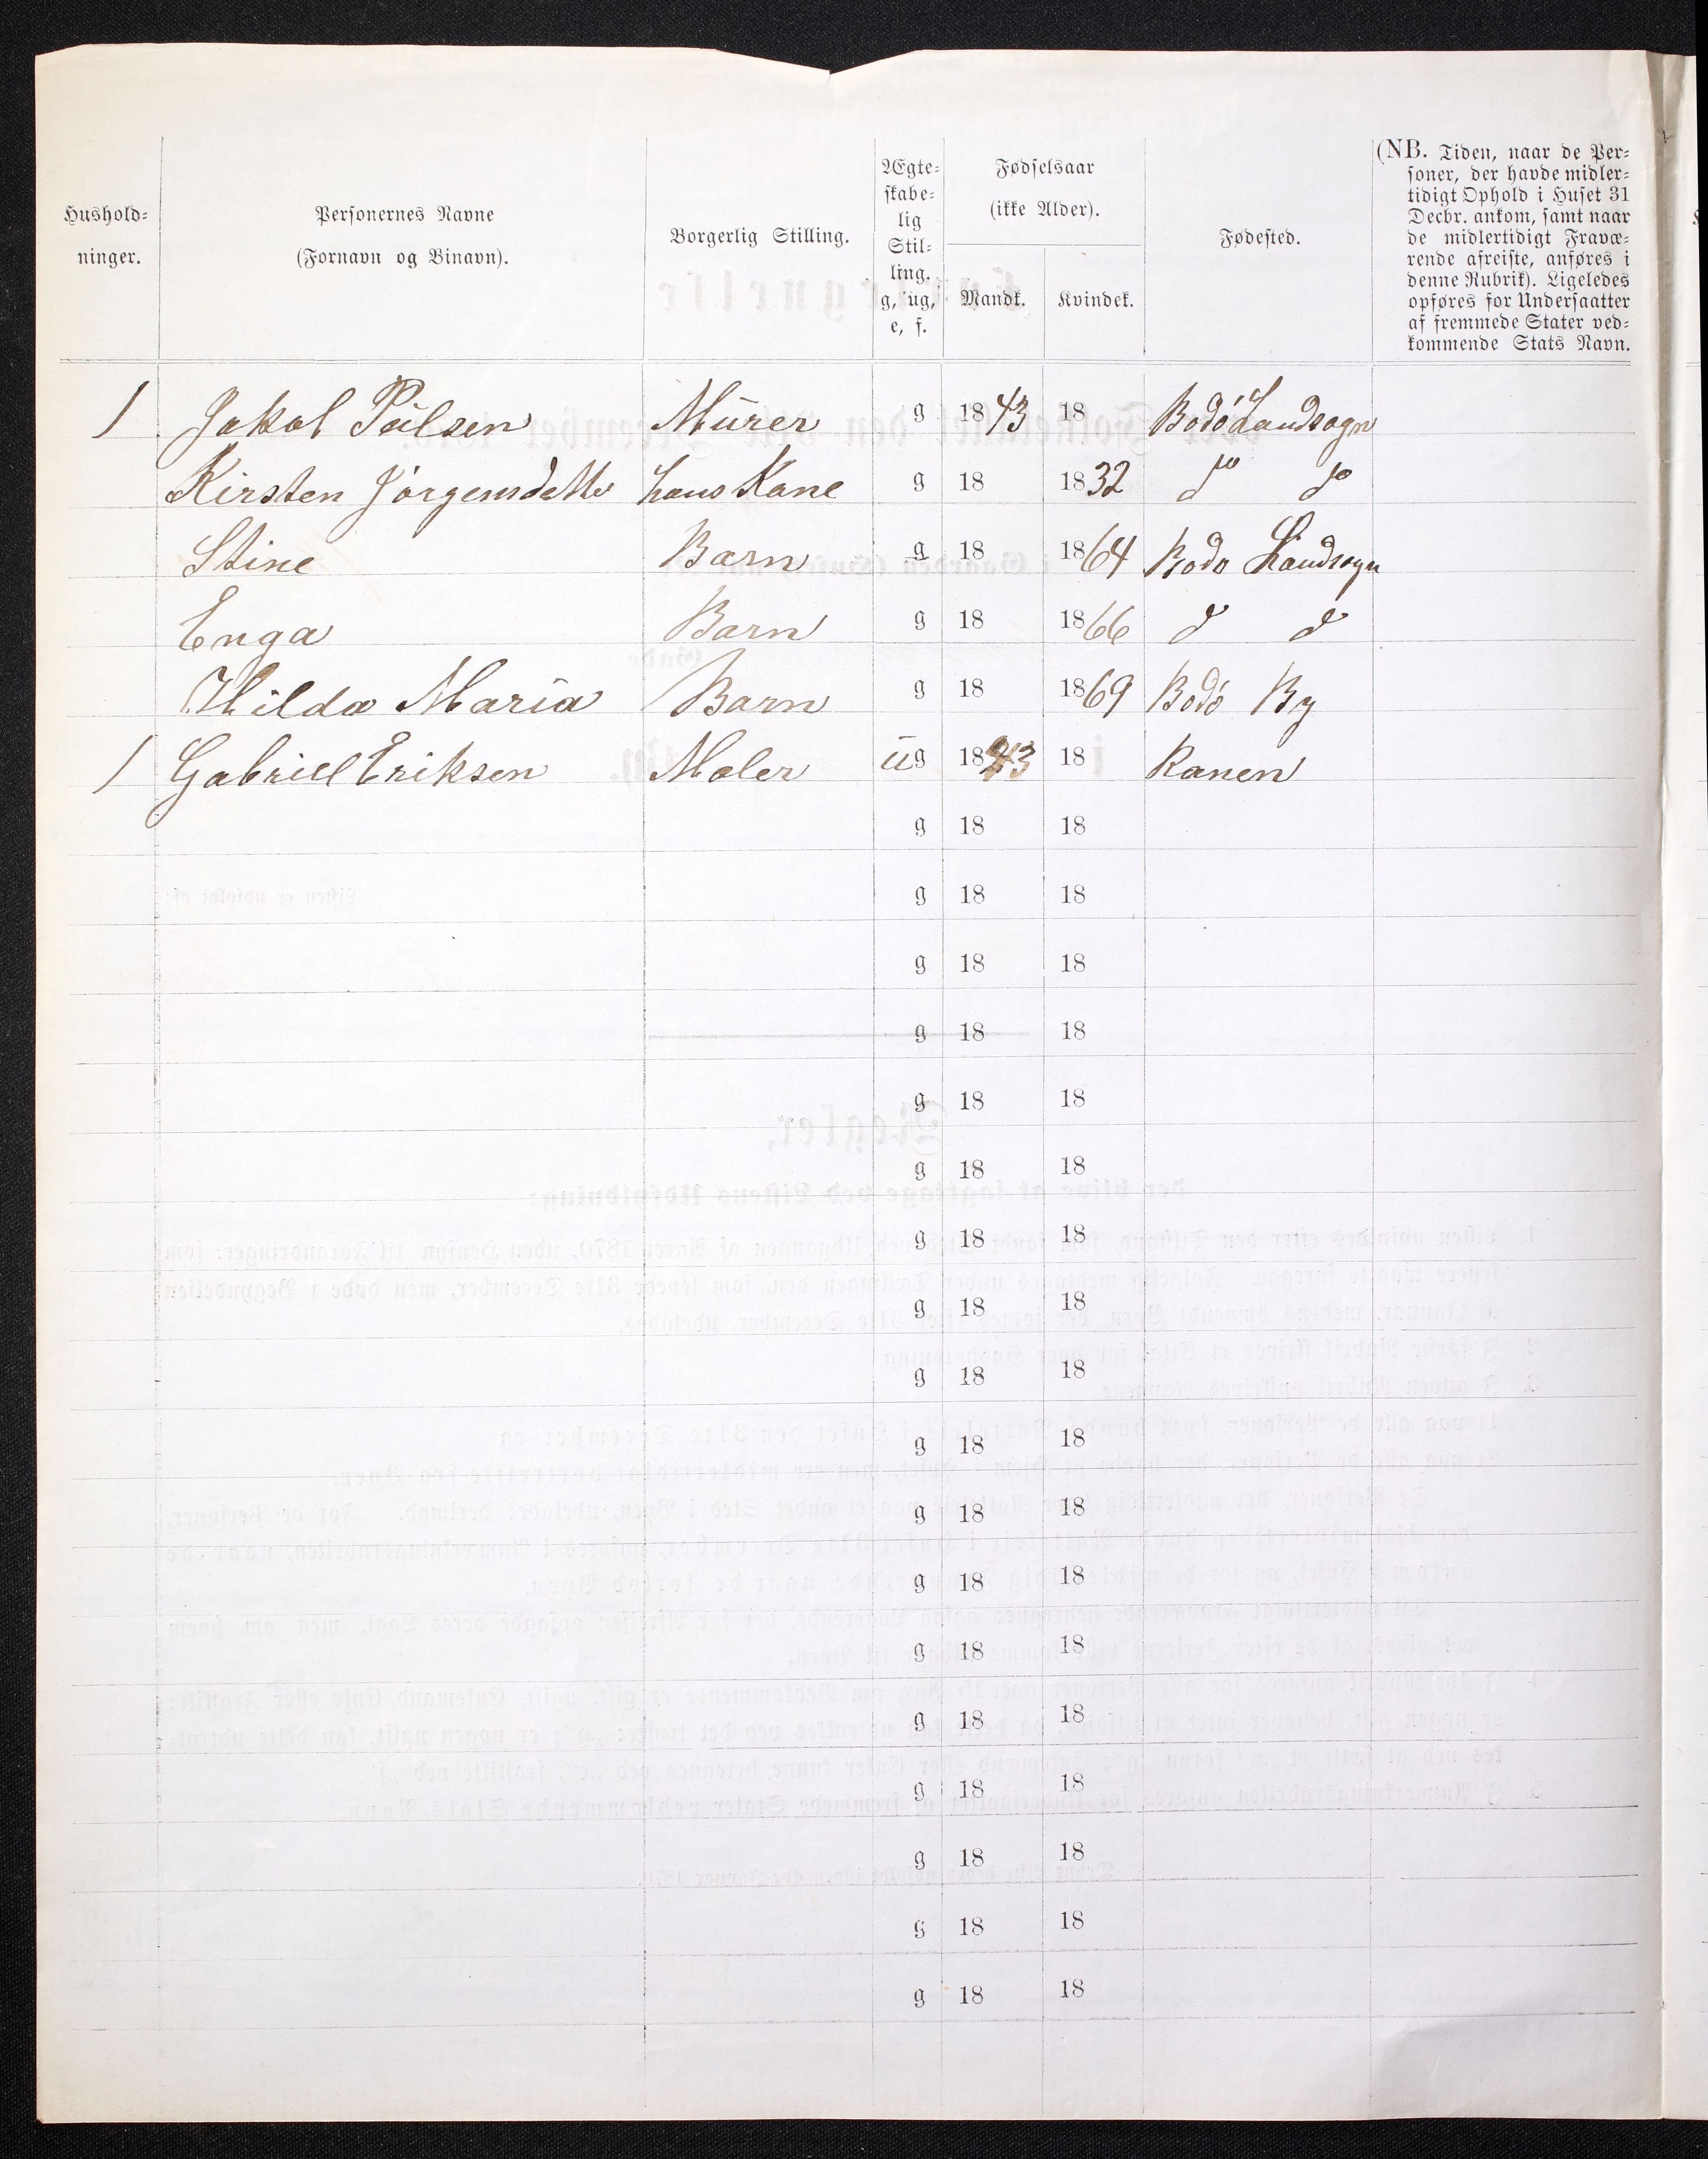 Hushold-
ninger.
Personernes Navne
(Fornavn og Binavn).
Borgerlig Stilling.
Ægte-
skabe-
lig
Stil-
ling.
g, ug,
e, f.
Fødselsaar
(ikke Alder).
Mandk. Kvindek.
Fødested.
(NB. Tiden, naar de Per-
soner, der havde midler-
tidigt Ophold i Huset 31
Decbr. ankom, samt naar
de midlertidigt Fravæ-
rende afreiste, anføres i
denne Rubrik). Ligeledes
opføres for Undersaatter
af fremmede Stater ved-
kommende Stats Navn.
1 Jakob Pülsen Mürer g 1843 18 Bodó Landsogn
Kirsten Jörgensdatter hans Kone g 18 1832 do do
Stine Barn g 18 1864 Bodo Landsogn
Enga Barn g 18 1866 d d
Hilda Maria Barn g 18 1869 Bodó By
1 Gabriel Eriksen Maler üg 1843 18 Ranen
g 18 18
g 18 18
g 18 18
g 18 18
g 18 18
g 18 18
g 18 18
g 18 18
g 18 18
g 18 18
g 18 18
g 18 18
g 18 18
g 18 18
g 18 18
g 18 18
g 18 18
g 18 18